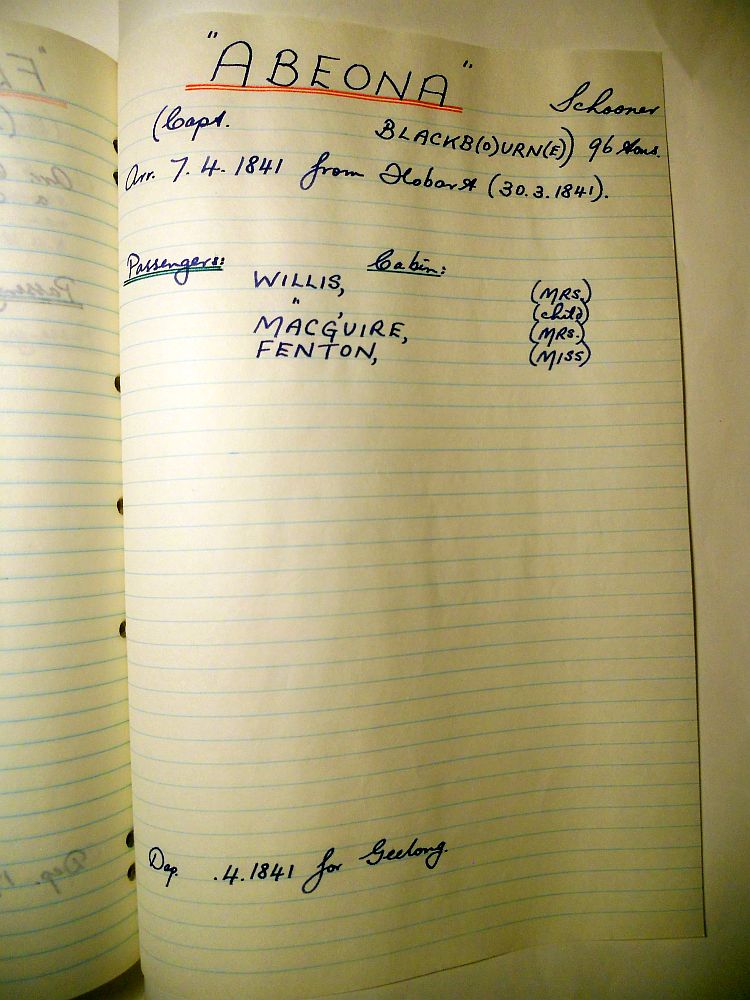 "ABEONA"
Schooner
(Capt. BLACKB(O)URN(E)) 96 tons.
Arr. 7.4.1841 from Hobart (30.3.1841).
Passengers: Cabin:
WILLIS, (MRS.)
" , (child)
MACGUIRE, (MRS.)
FENTON, (MISS)
Dep. .4.1841 for Geelong.